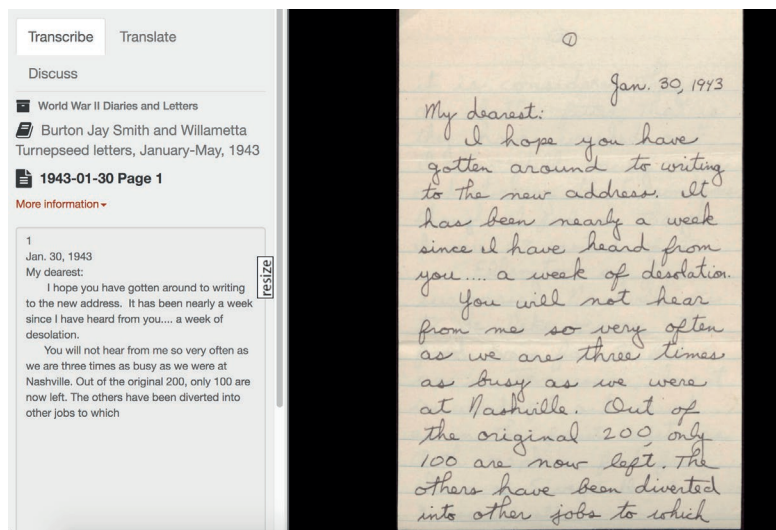 Transcribe
Translate
Discuss
World War II Diaries and Letters
Burton Jay Smith and Willametta
Turnepseed letters, January-May, 1943
1943-01-30 Page 1
More information
1
Jan. 30, 1943
My dearest:
I hope you have gotten around to writing
to the new address. It has been nearly a week
since I have heard from you.... a week of
desolation.
You will not hear from me so very often as
we are three times as busy as we were at
Nashville. Out of the original 200, only 100 are
now left. The others have been diverted into
other jobs to which
resize
1
Jan. 30, 1943
My dearest:
I hope you have
gotten around to writing
to the new address. It
has been nearly a week
since I have heard from
you.... a week of desolation.
You will not hear
from me so very often
as we are three times
as busy as we were
at Nashville. Out of
the original 200, only
100 are now left. The
others have been diverted
into other jobs to which